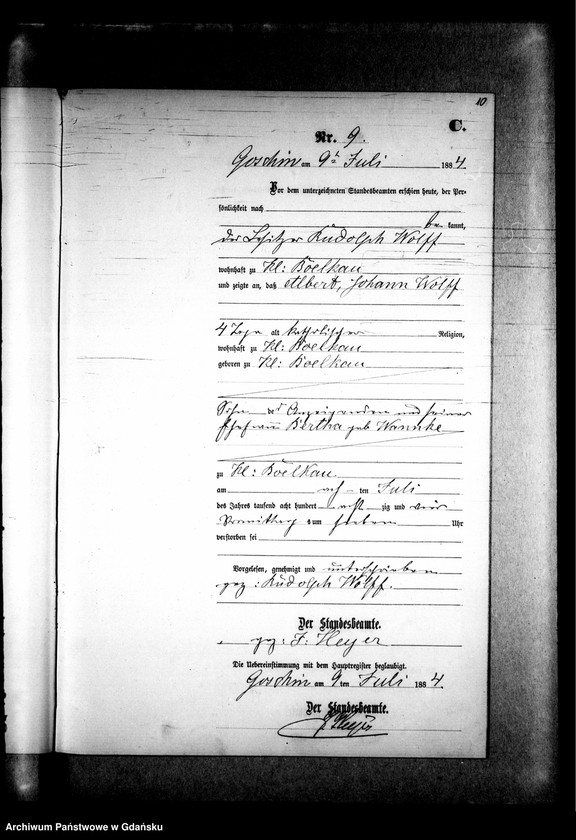 10
C.
Nr. 9.
Goschin am 9ten Juli 1884.
Vor dem unterzeichneten Standesbeamten erschien heute, der Per-
sönlichkeit nach
be kannt,
der Besitzer Rudolph Wolff
wohnhaft zu Kl: Boelkau
und zeigte an, daß Albert, Johann Wolff
4 Tage alt katholischer Religion,
wohnhaft zu Kl: Boelkau
geboren zu Kl: Boelkau
Sohn des Anzeigenden und seiner
Ehefrau Bertha geb Wannke
zu Kl: Boelkau
am ten Juli
des Jahres tausend acht hundert acht zig und vier
Vormittags um sieben Uhr
verstorben sei
Vorgelesen, genehmigt und unterschrieben
gez: Rudolph Wolff.
Der Standesbeamte.
gez: F. Heyer
Die Uebereinstimmung mit dem Hauptregister beglaubigt.
Goschin am 9 ten Juli 1884.
Der Standesbeamte.
Heyer
Archiwum Państwowe w Gdańsku